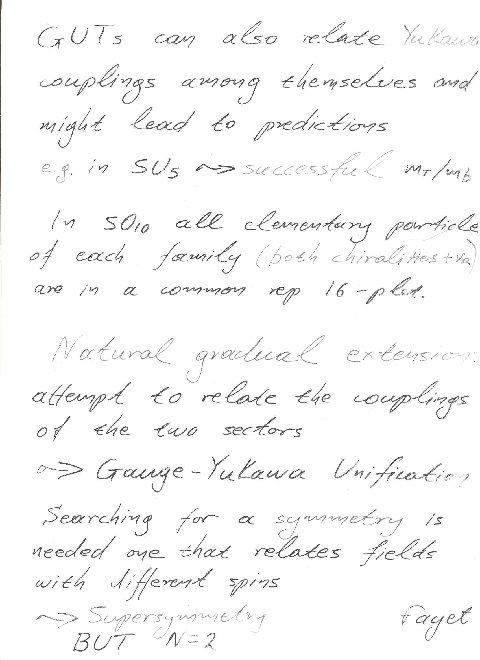 GUTs can also relate Yukawa
couplings among themselves and
might lead to predictions
e.g. in SU5 ~> successful mτ/mb
In SO10 all elementary particle
of each family (both chiralities + νR)
are in a common rep 16-plet.
Natural gradual extension:
attempt to relate the couplings
of the two sectors
~> Gauge-Yukawa Unification
Searching for a symmetry is
needed one that relates fields
with different spins
~> Supersymmetry Fayet
BUT N=2